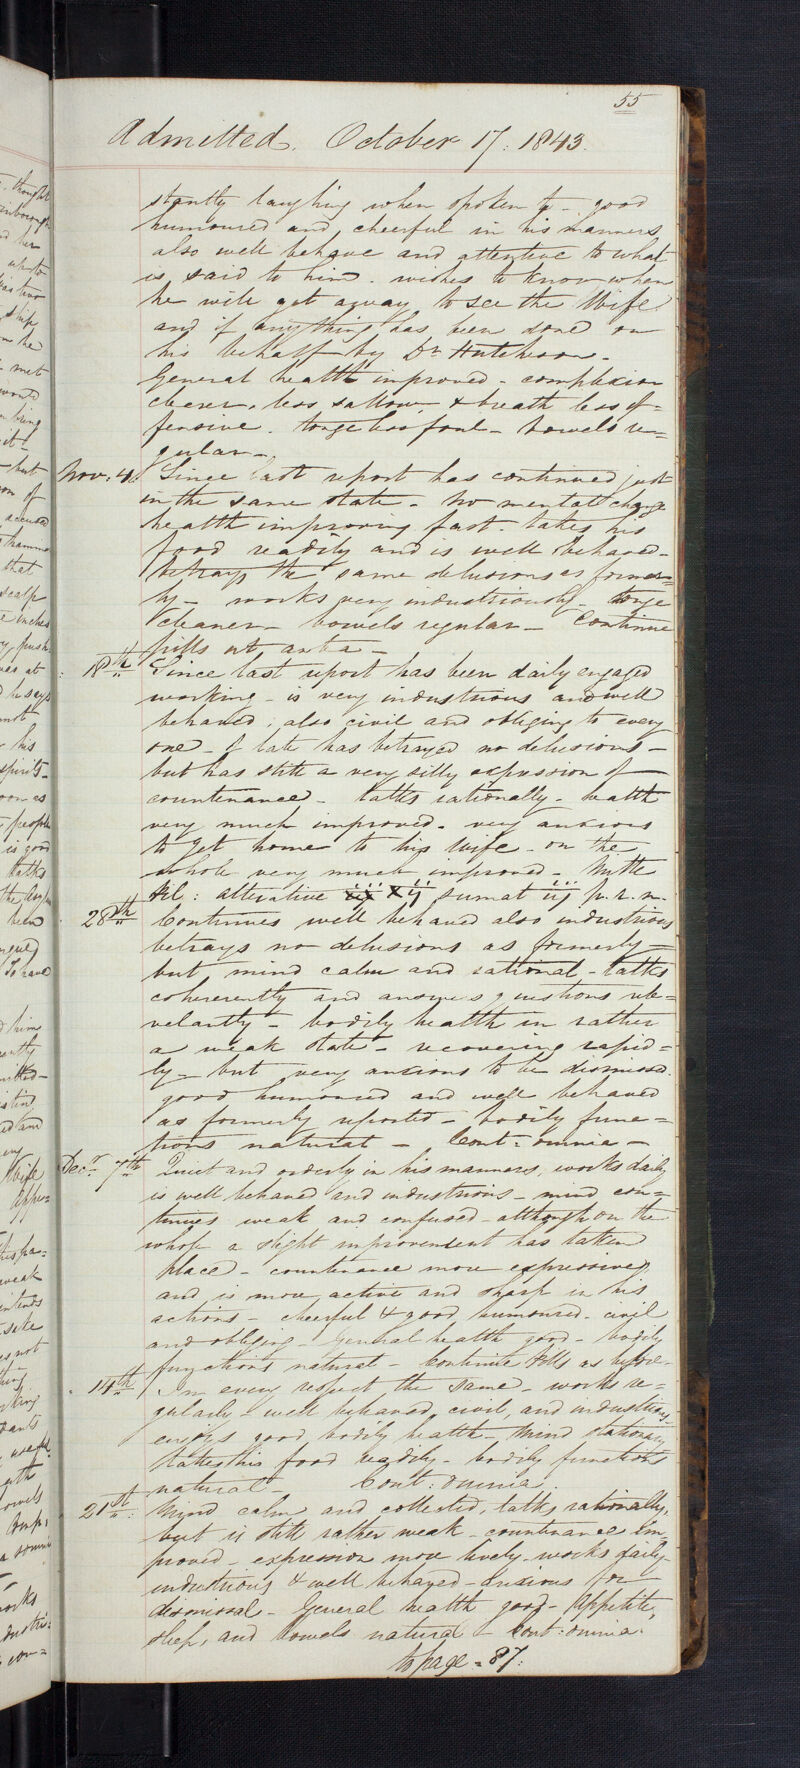 55
Admitted. October 17: 1843.
stantly laughing when spoken to - good
humoured and cheerful in his manners
also well behave and attentive to what
is said to him. wishes to know when
he will get away to see the Wife
and if anything has been done on
his behalf by Dr Hutcheson -
General health improved - complexion
clearer, less sallow & breath less of=
fensive. tonge less foul - bowels re=
gular -
Nov: 4 Since last report has continued just
in the same state - No mental change
health improving fast - takes his
food readily and is well behaved -
betrays the same delusions as former=
ly - works very industriously - tonge
cleaner - bowels regular - Continue
pills ut antea -
18th Since last report has been daily engaged
working - is very industrious and well
behaved; also civil and obliging to every
one - of late has betrayed no delusions -
but has still a very silly expression of
countenance - talks rationally - health
very much improved. very anxious
to get home to his wife - on the
whole very much improved - Mitte
Pil: alterative xij sumat iij p.r.n.
28th Continues well behaved also industrious
betrays no delusions as formerly =
but mind calm and rational - talks
coherently and answers questions re=
velantly - bodily health in rather
a weak state - recovering rapid=
ly - but very anxious to be dismissed.
good humoured and well behaved
as formerly reported - bodily func=
tions natural - Cont: omnia -
Decr 7th Quiet and orderly in his manners, works daily
is well behaved and industrious - mind con=
tinues weak and confused - although on the
whole a slight improvement has taken
place - countenance more expressive
and is more active and sharp in his
actions - cheerful & good humoured - civil
and obliging - General health good - bodily
functions natural - Continue Pills as before -
14th In every respect the same - works re=
gularly - well behaved, civil, and industrious
enjoys good bodily health - Mind stationary
takes his food readily - bodily functions
natural - Cont: omnia
21st: Mind calm and collected, talks rationally,
but is still rather weak - countenance im=
proved - expression more lively - works daily -
industrious & well behaved - Anxious for
dismissal - General health good - Appetite,
sleep, and bowels natural - Cont: omnia.
to page = 87: